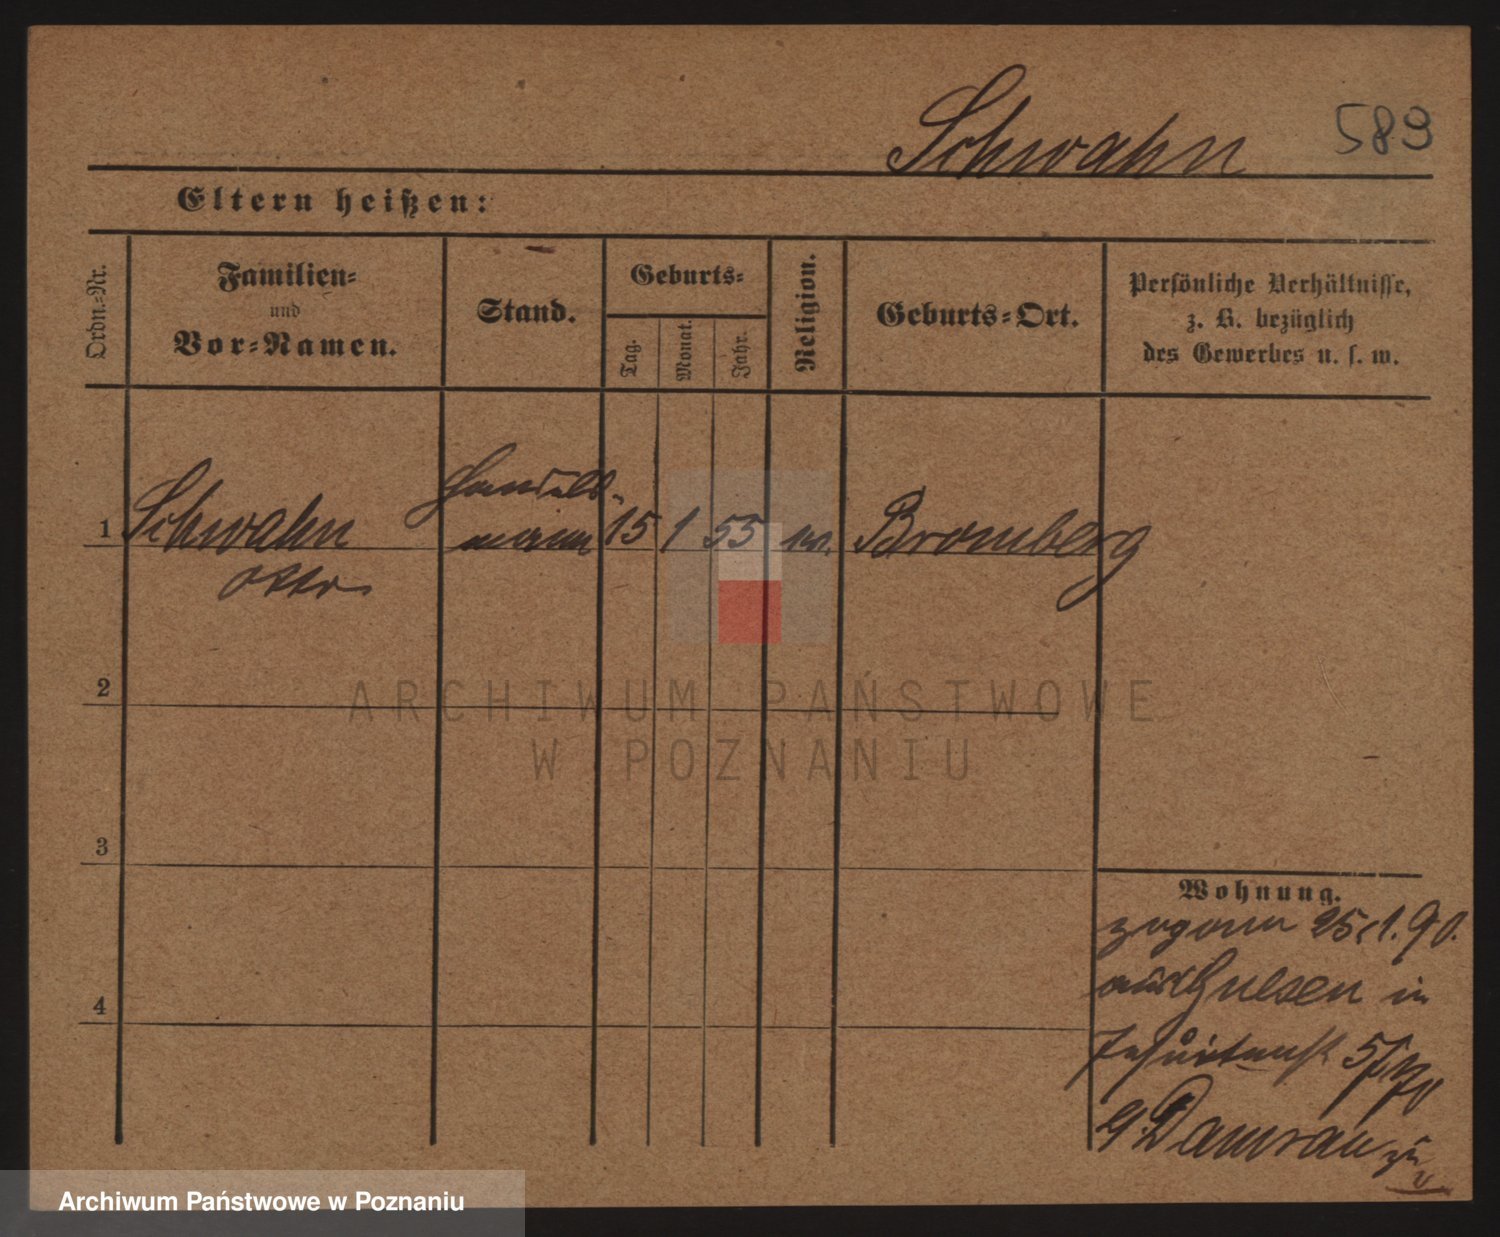 Schwahn 583
Eltern heißen:
Ordn.=Nr.
Familien=
und
Vor=Namen.
Stand.
Geburts=
Tag.
Monat.
Jahr.
Religion.
Geburts=Ort.
Persönliche Verhältnisse,
z. B. bezüglich
des Gewerbes u. s. w.
1 Schwahn Handels- 15 1 55 Bromberg
mann
Otto
2
ARCHIWUM PAŃSTWOWE
W POZNANIU
3
Wohnung.
25/1.90.
aus Gnesen in
Jesuitenstr 5
Damrau zu
4
Archiwum Państwowe w Poznaniu